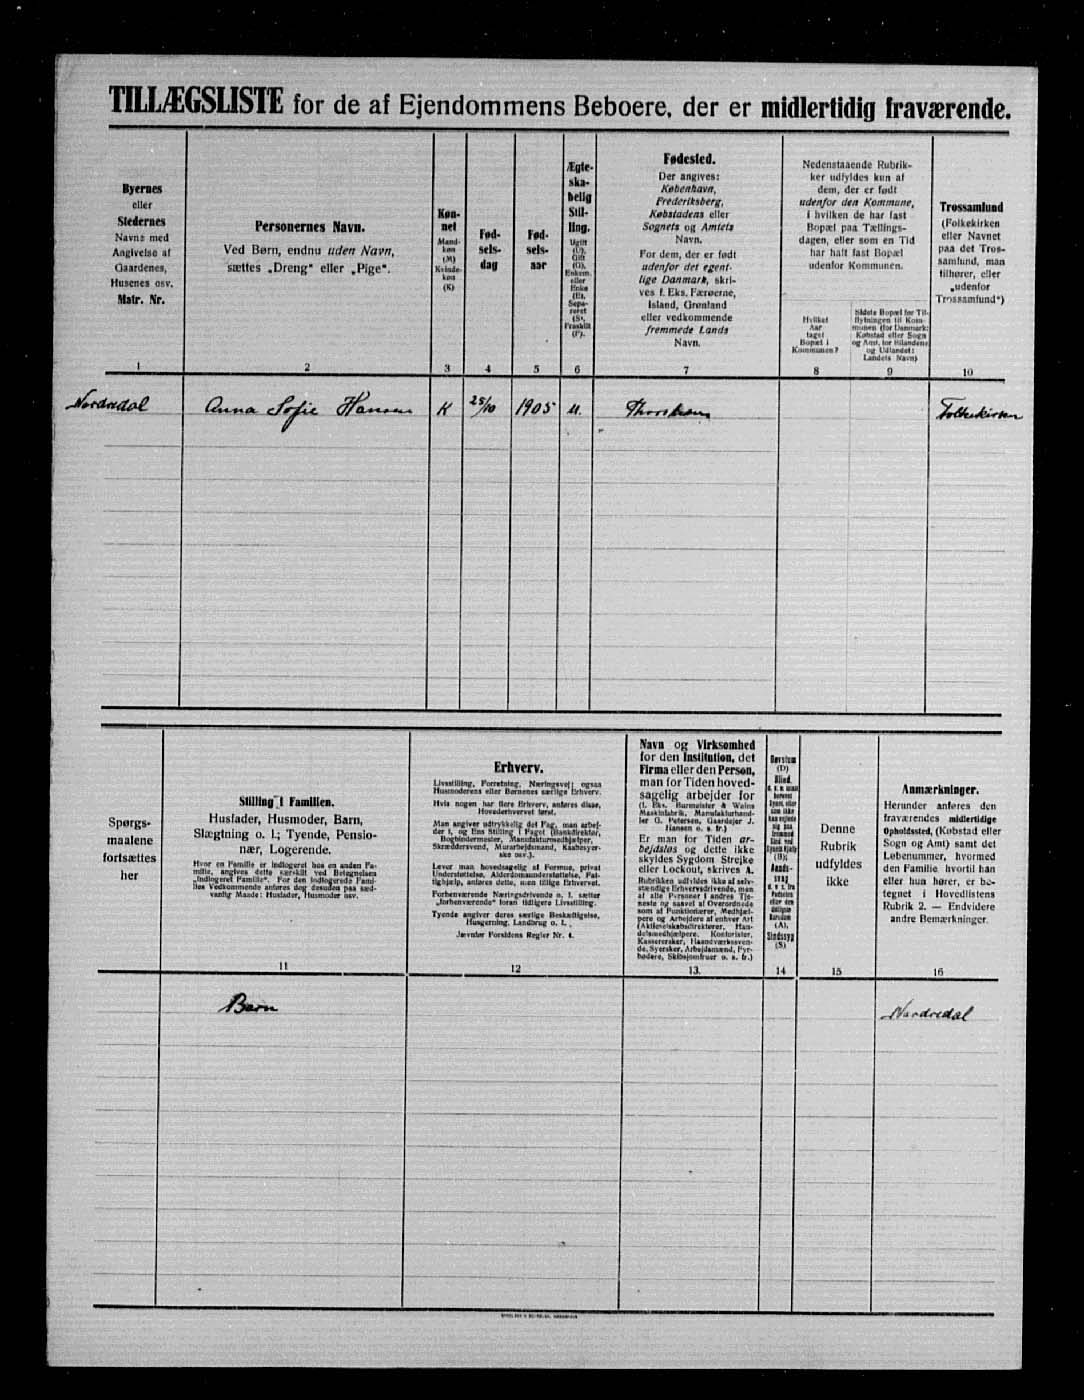 TILLÆGSLISTE for de af Ejendommens Beboere, der er midlertidig fraværende.
Byernes
eller
Stedernes
Navne med
Angivelse af
Gaardenes,
Husenes osv.
Matr. Nr.
1
Personernes Navn.
Ved Børn, endnu uden Navn,
sættes „Dreng“ eller „Pige“.
2
Køn-
net
Mand-
køn
(M)
Kvinde-
køn
(K)
3
Fød-
sels-
dag
4
Fød-
sels-
aar
5
Ægte-
ska-
belig
Stil-
ling.
Ugift
(U),
Gift
(G),
Enkem.
eller
Enke
(E),
Sepa-
reret
(S),
Fraskilt
(F).
6
Fødested.
Der angives:
København,
Frederiksberg,
Købstadens eller
Sognets og Amtets
Navn.
For dem, der er født
udenfor det egent-
lige Danmark, skri-
ves f. Eks. Færøerne,
Island, Grønland
eller vedkommende
fremmede Lands
Navn.
7
Nedenstaaende Rubrik-
ker udfyldes kun af
dem, der er født
udenfor den Kommune,
i hvilken de har fast
Bopæl paa Tællings-
dagen, eller som en Tid
har haft fast Bopæl
udenfor Kommunen.
Hvilket
Aar
taget
Bopæl i
Kommunen?
8
Sidste Bopæl før Til-
flytningen til Kom-
munen (for Danmark:
Købstad eller Sogn
og Amt, for Bilandene
og Udlandet:
Landets Navn)
9
Trossamfund
(Folkekirken
eller Navnet
paa det Tros-
samfund, man
tilhører, eller
„udenfor
Trossamfund“)
10
Nordredal Anna Sofie Hansen K 25/10 1905 U. Folkekirken
Spørgs-
maalene
fortsættes
her
Stilling i Familien.
Husfader, Husmoder, Barn,
Slægtning o. l.; Tyende, Pensio-
nær, Logerende.
Hvor en Familie er indlogeret hos en anden Fa-
milie, angives dette særskilt ved Betegnelsen
„Indlogeret Familie“. For den indlogerede Fami-
lies Vedkommende anføres dog desuden paa sæd-
vanlig Maade: Husfader, Husmoder osv.
11
Erhverv.
Livsstilling, Forretning, Næringsvej; ogsaa
Husmoderens eller Børnenes særlige Erhverv.
Hvis nogen har flere Erhverv, anføres disse,
Hovederhvervet først.
Man angiver udtrykkelig det Fag, man arbej-
der i, og Ens Stilling i Faget (Bankdirektør,
Bogbindermester, Manufakturmedhjælper,
Skræddersvend, Murarbejdsmand, Kaabesyer-
ske osv.).
Lever man hovedsagelig af Formue, privat
Understøttelse, Alderdomsunderstøttelse, Fat-
tighjælp, anføres dette, men tillige Erhvervet.
Forhenværende Næringsdrivende o. l. sætter
„forhenværende“ foran tidligere Livsstilling.
Tyende angiver deres særlige Beskæftigelse,
Husgerning, Landbrug o. l.
Jævnfør Forsidens Regler Nr. 4.
12
Navn og Virksomhed
for den Institution, det
Firma eller den Person,
man for Tiden hoved-
sagelig arbejder for
(f. Eks. Burmeister & Wains
Maskinfabrik, Manufakturhand-
ler G. Petersen, Gaardejer J.
Hansen o. s. fr.)
Er man for Tiden ar-
bejdsløs og dette ikke
skyldes Sygdom Strejke
eller Lockout, skrives A.
Rubrikken udfyldes ikke af selv-
stændige Erhvervsdrivende, men
af alle Personer i andres Tje-
neste og saavel af Overordnede
som af Funktionærer, Medhjæl-
pere og Arbejdere af enhver Art
(Aktieselskabsdirektører, Han-
delsmedhjælpere, Kontorister,
Kassererske, Haandværkssven-
de, Syersker, Arbejdsmænd, Fyr-
bødere, Skibsjomfruer o. s. fr.)
13.
Døvstum
(D)
Blind,
(B);
(A),
Sindssyg
(S)
14
Denne
Rubrik
udfyldes
ikke
15
Anmærkninger.
Herunder anføres den
fraværendes midlertidige
Opholdssted, (Købstad eller
Sogn og Amt) samt det
Løbenummer, hvormed
den Familie, hvortil han
eller hun hører, er be-
tegnet i Hovedlistens
Rubrik 2. — Endvidere
andre Bemærkninger.
16
Barn Nordredal